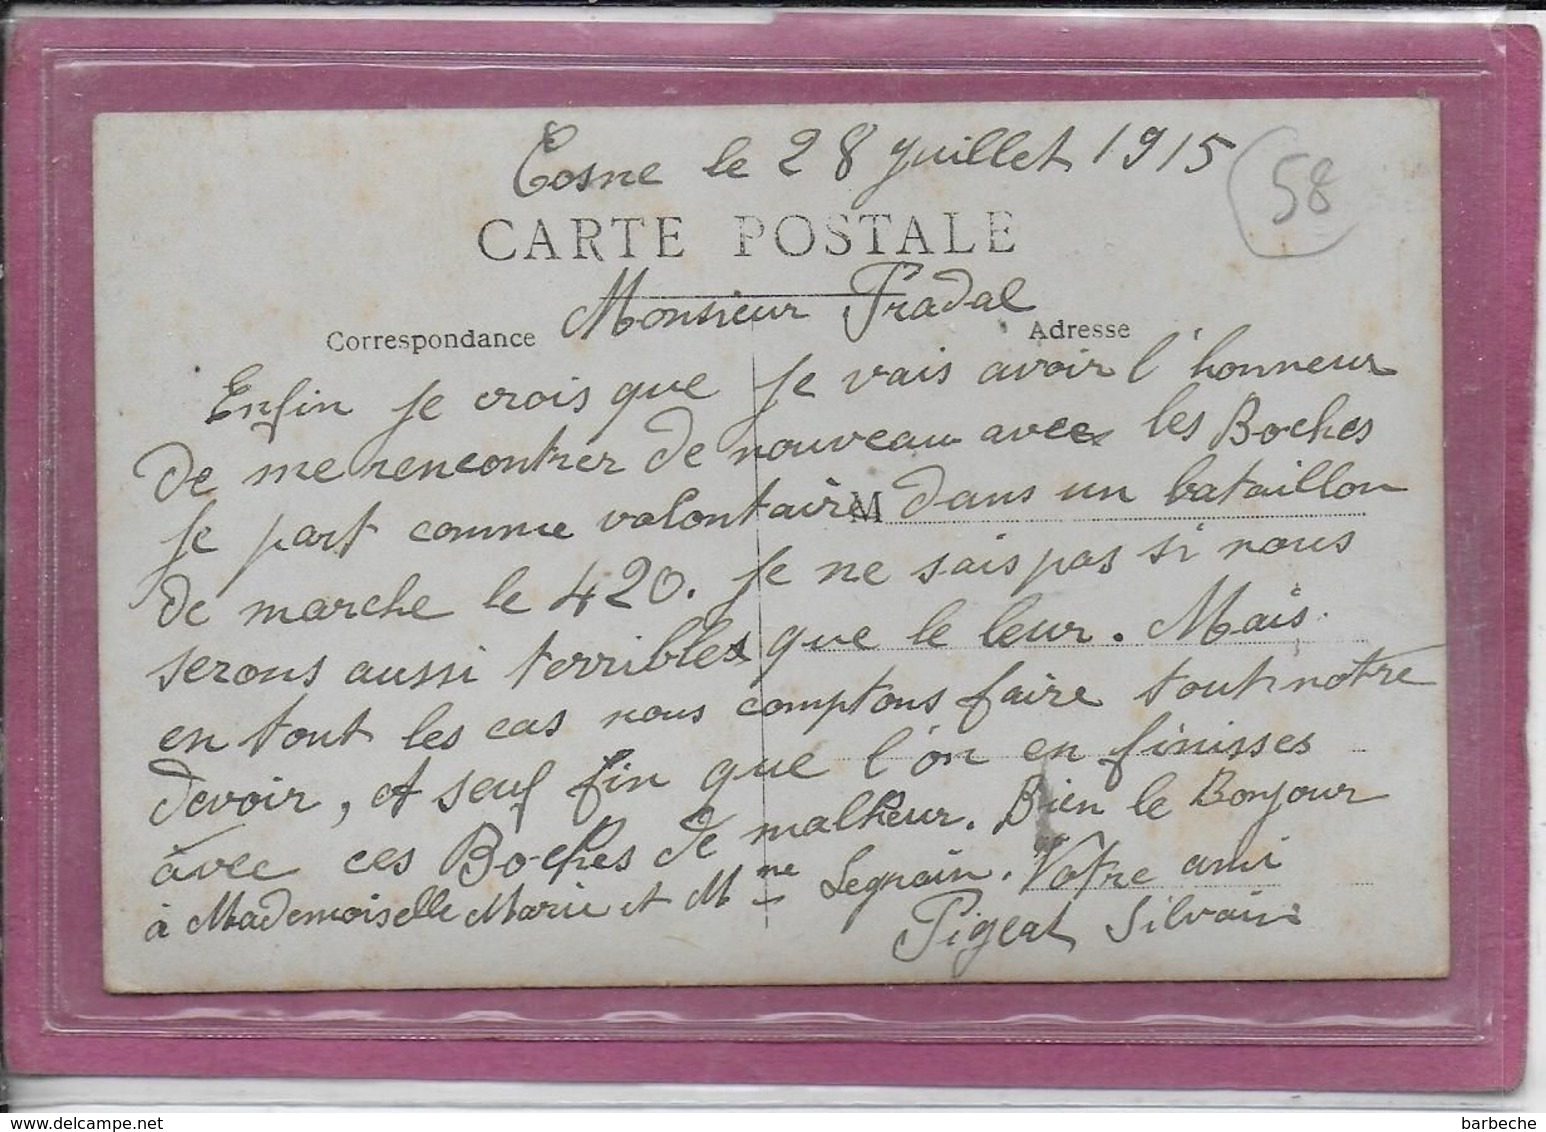 Cosne le 28 Juillet 1915
58
CARTE POSTALE
Monsieur Pradal
Correspondance
Adresse
Enfin je crois que je vais avoir l'honneur
de me rencontrer de nouveau avec les Boches
je part comme volontaire dans un bataillon
M
de marche le 420. je ne sais pas si nous
serons aussi terribles que le leur. Mais
en tout les cas nous comptons faire tout notre
devoir, et seuf fin que l'on en finisses
avec ces Boches de malheur. Bien le Bonjour
à Mademoiselle Marie et Mme Legrain. Votre ami
Pigeat Silvain
delcampe.net
barbeche